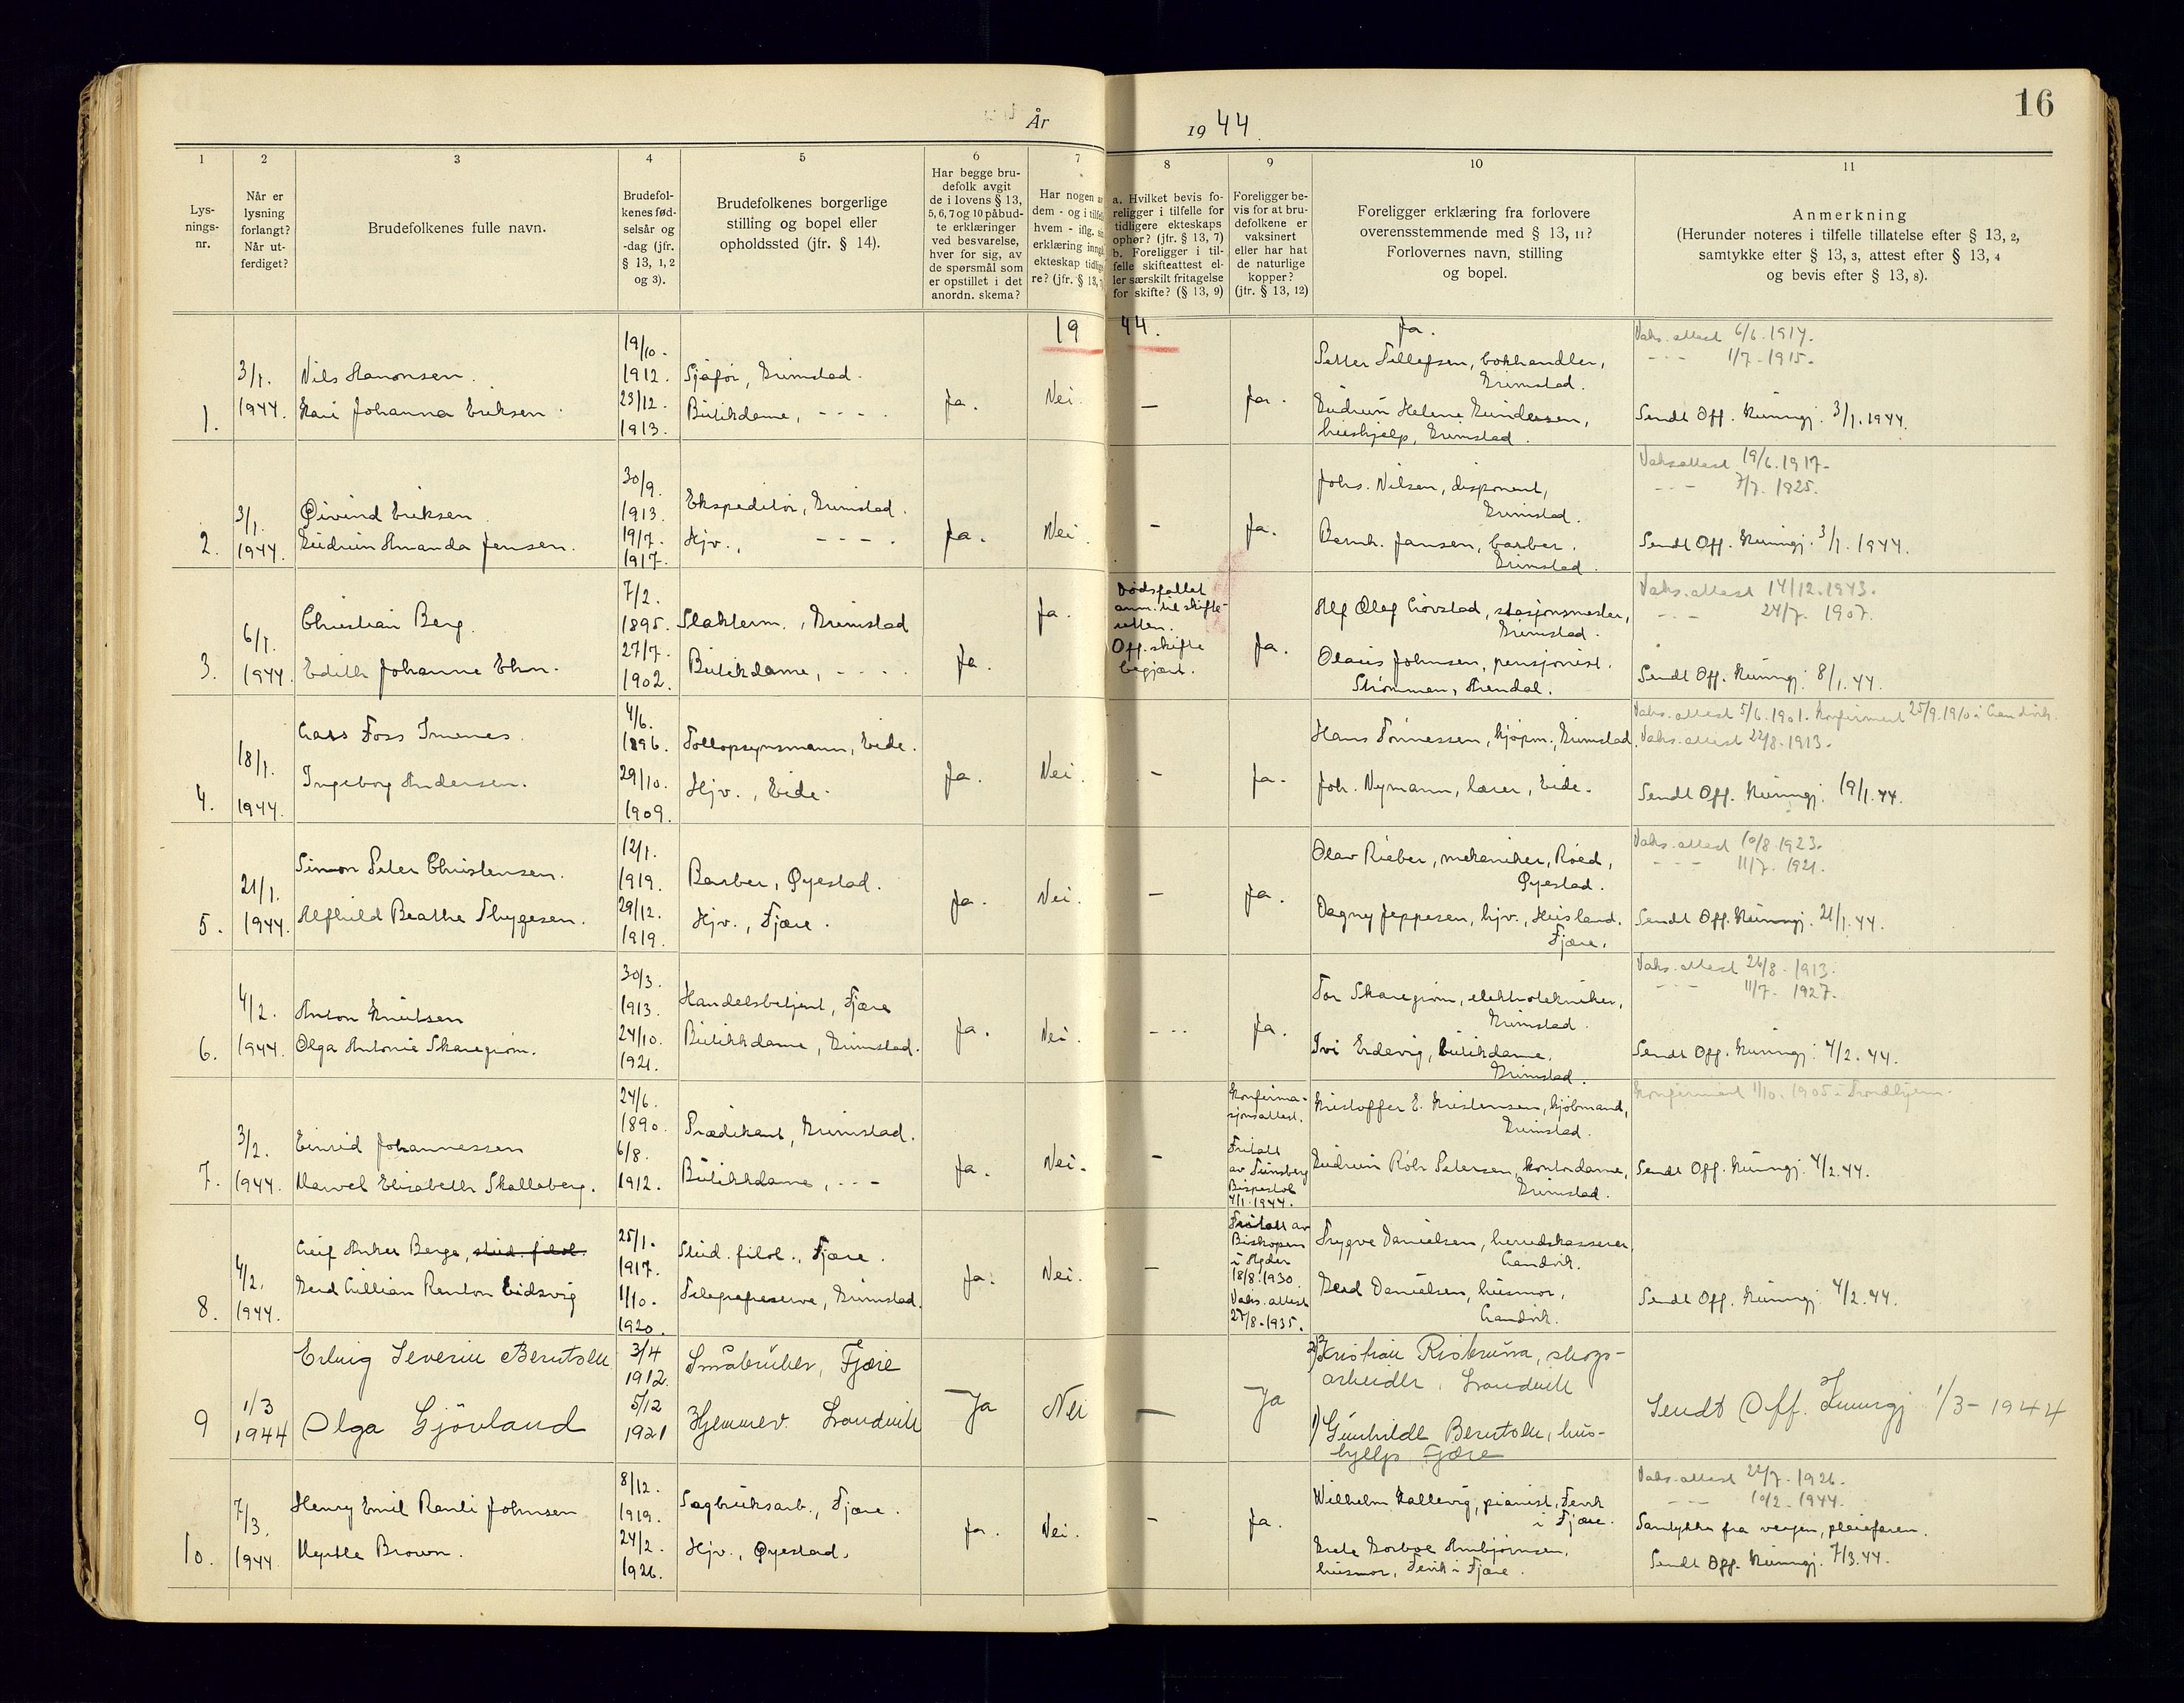 År 1944.
16
1
2
3
4
5
6
7
8
9
10
11
Lys-
nings-
nr.
Når er
lysning
forlangt?
Når ut-
ferdiget?
Brudefolkenes fulle navn.
Brudefol-
kenes fød-
selsår og
-dag (jfr.
§ 13, 1, 2
og 3).
Brudefolkenes borgerlige
stilling og bopel eller
opholdssted (jfr. § 14).
Har begge bru-
defolk avgit
de i lovens § 13,
5, 6, 7 og 10 påbud-
te erklæringer
ved besvarelse,
hver for sig, av
de spørsmål som
er opstillet i det
anordn. skema?
Har nogen av
dem - og i tilfelle
hvem - iflg. sin
erklæring inngått
ekteskap tidlige-
re? (jfr. § 13, 7)
a. Hvilket bevis fo-
religger i tilfelle for
tidligere ekteskaps
ophør? (jfr. § 13, 7)
b. Foreligger i til-
felle skifteattest el-
ler særskilt fritagelse
for skifte? (§ 13, 9)
Foreligger be-
vis for at bru-
defolkene er
vaksinert
eller har hat
de naturlige
kopper?
(jfr. § 13, 12)
Foreligger erklæring fra forlovere
overensstemmende med § 13, 11?
Forlovernes navn, stilling
og bopel.
Anmerkning
(Herunder noteres i tilfelle tillatelse efter § 13, 2,
samtykke efter § 13, 3, attest efter § 13, 4
og bevis efter § 13, 8).
19 44.
1.
3/1.
1944.
Nils Aanonsen.
Kari Johanna Eriksen.
19/10.
1912.
23/12.
1913.
Sjåfør, Grimstad.
Butikdame, - - - .
Ja.
Nei.
—
Ja.
Ja.
Petter Tellefsen, bokhandler,
Grimstad.
Gudrun Helene Gundersen,
hushjelp, Grimstad.
Vaks. attest 6/6. 1917.
- - - 1/7. 1915.
Sendt Off. Kunngj. 3/1. 1944.
2.
3/1.
1944.
Øivind Eriksen
Gudrun Amanda Jensen.
30/9.
1913.
19/7.
1917.
Ekspeditør, Grimstad.
Hjv., - - - .
Ja.
Nei.
-
Ja.
Johs. Nilsen, disponent,
Grimstad.
Bernh. Jansen, barber.
Grimstad.
Vaksattest 19/6. 1917.
- - - 7/7. 1925.
Sendt Off. Kunngj. 3/1. 1944.
3.
6/1.
1944.
Christian Berg.
Edith Johanne Ehn.
7/2.
1895.
27/7.
1902.
Slakterm., Grimstad
Butikdame, - - - .
Ja.
Ja.
Dødsfallet
anm. til skifte-
retten.
Off. skifte
begjært.
Ja.
Alf Olaf Løvstad, stasjonsmester,
Grimstad.
Olaus Johnsen, pensjonist.
Strømmen, Arendal.
Vaks. attest 14/12. 1943.
- - - 24/7. 1907.
Sendt Off. Kunngj. 8/1. 44.
4.
18/1.
1944.
Lars Foss Imenes.
Ingeborg Andersen.
4/6.
1896.
29/10.
1909.
Tollopsynsmann, Eide.
Hjv., Eide.
Ja.
Nei.
-
Ja.
Hans Tønnessen, kjøpm., Grimstad.
Joh. Nymann, lærer, Eide.
Vaks. attest 5/6. 1901. Konfirmert 25/9. 1910 i Landvik.
Vaks. attest 22/8. 1913.
Sendt Off. Kunngj. 19/1. 44.
5.
21/1.
1944.
Simon Peter Christensen.
Alfhild Beathe Thygesen.
12/1.
1919.
29/12.
1919.
Barber, Øyestad.
Hjv., Fjære.
Ja.
Nei.
—
Ja.
Olav Rieber, mekaniker, Roed,
Øyestad.
Dagny Jeppesen, hjv., Heisland.
Fjære.
Vaks. attest 10/8. 1923.
- - - 11/7. 1921.
Sendt Off. Kunngj. 21/1. 44.
6.
4/2.
1944.
Anton Knutsen
Olga Antonie Skaregrøm.
30/3.
1913.
24/10.
1921.
Handelsbetjent, Fjære
Butikkdame, Grimstad.
Ja.
Nei.
- - -
Ja.
Tor Skaregrøm, elektrotekniker,
Grimstad.
Ivi Erdevig, butikdame.
Grimstad.
Vaks. attest 26/8. 1913.
- - - 11/7. 1927.
Sendt Off. Kunngj. 4/2. 44.
7.
3/2.
1944.
Einrid Johannessen
Marvel Elisabeth Skalleberg.
24/6.
1890.
6/8.
1912.
Predikant, Grimstad.
Butikkdame, - - -
Ja.
Nei.
-
Konfirma-
sjonsattest.
Fritatt
av Tunsberg
Bispestol
4/1. 1944.
Kristoffer E. Kristensen, kjøbmand,
Grimstad.
Gudrun Röhr Petersen, kontordame,
Grimstad.
Konfirmert 1/10. 1905 i Trondhjem.
Sendt Off. Kunngj. 4/2. 44.
8.
4/2.
1944.
Leif Anker Berge, stud. filol.
Gerd Lillian Renton Eidsvig
25/1.
1917.
1/10.
1920.
Stud. filol., Fjære.
Telegrafreserve, Grimstad.
Ja.
Nei.
—
Fritatt av
Biskopen
i Agder
18/8. 1930.
Vaks. attest
27/8. 1935.
Trygve Danielsen, herredskasserer,
Landvik.
Gerd Danielsen, husmor,
Landvik.
Sendt Off. Kunngj. 4/2. 44.
9
1/3
1944
Erling Severin Berntsen
Olga Gjövland
3/4
1912.
5/12
1921
Småbruker, Fjære
Hjemmev. Landvik
Ja
Nei
—
Ja
2) Kristian Riskrusa, skogs-
arbeider, Landvik
1) Gunhilde Berntsen, hus-
hjelp Fjære
Sendt Off. Kunngj 1/3 - 1944
10.
7/3.
1944.
Henry Emil Ranti Johnsen
Myrtle Brown.
8/12.
1919.
24/2.
1926.
Sagbruksarb., Fjære.
Hjv., Øyestad.
Ja.
Nei.
-
Ja.
Wilhelm Kallevig, pianist, Fevik
i Fjære.
Grete Gorboe Arnbjørnsen,
husmor, Fevik i Fjære.
Vaks. attest 22/7. 1926.
- - - 10/2. 1944.
Samtykke fra vergen, pleiefaren.
Sendt Off. Kunngj. 7/3. 44.